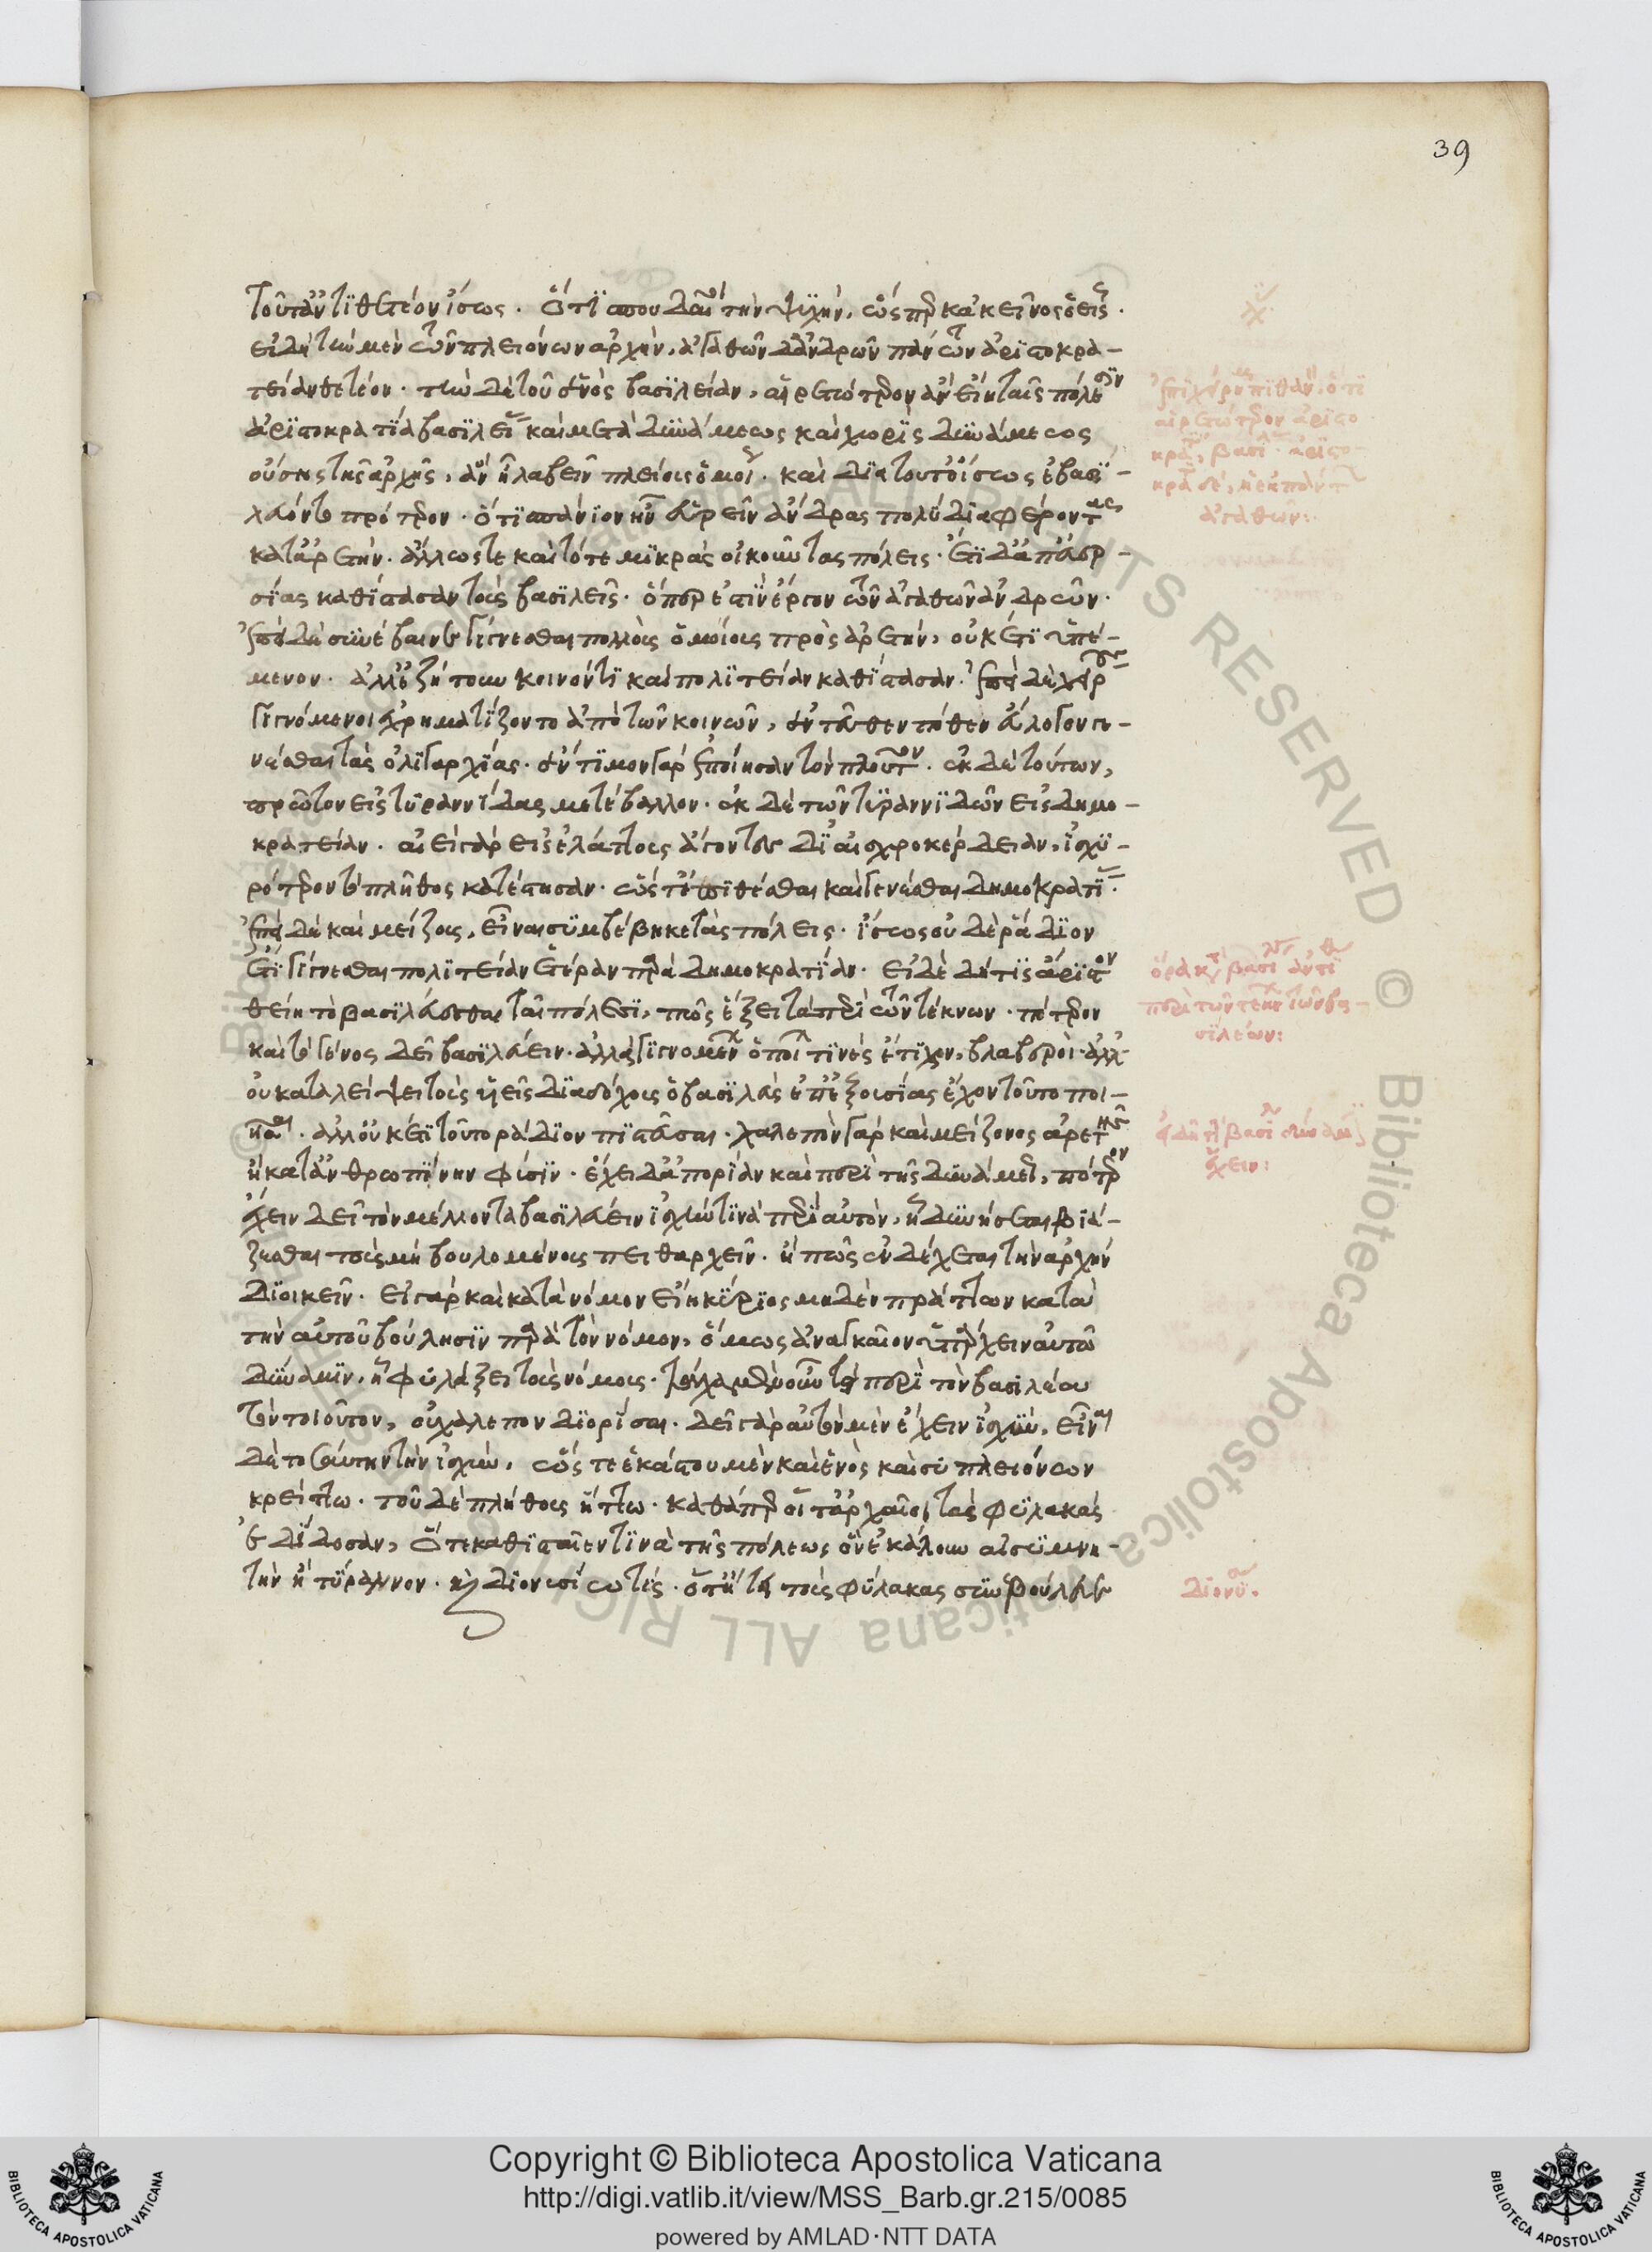 39
τοῦτ' ἀντιθετέον ἴσως. ὅτι σπουδαῖοι τὴν ψυχήν, ὥσπερ κἀκεῖνος ὁ εἷς.
εἰ δὴ τὴν μὲν τῶν πλειόνων ἀρχήν, ἀγαθῶν δ' ἀνδρῶν πάντων ἀριστοκρα-
τείαν θετέον. τὴν δὲ τοῦ ἑνὸς βασιλείαν, αἱρετώτερον ἂν εἴη ταῖς πόλεσιν
ἀριστοκρατία βασιλείας καὶ μετὰ δυνάμεως καὶ χωρὶς δυνάμεως
οὔσης τῆς ἀρχῆς, ἂν ᾖ λαβεῖν πλείους ὁμοίους. καὶ διὰ τοῦτ' ἴσως ἐβασι-
λεύοντο πρότερον. ὅτι σπάνιον ἦν εὑρεῖν ἄνδρας πολὺ διαφέροντας
κατ' ἀρετήν. ἄλλως τε καὶ τότε μικρὰς οἰκοῦντας πόλεις. ἔτι δ' ἀπ' εὐερ-
σίας καθίστασαν τοὺς βασιλεῖς. ὅπερ ἐστὶν ἔργον τῶν ἀγαθῶν ἀνδρῶν.
ἐπεὶ δὲ συνέβαινε γίγνεσθαι πολλοὺς ὁμοίους πρὸς ἀρετήν, οὐκέτι ὑπέ-
μενον. ἀλλ' ἐζήτουν κοινόν τι καὶ πολιτείαν καθίστασαν. ἐπεὶ δὲ χείρους
γιγνόμενοι ἐχρηματίζοντο ἀπὸ τῶν κοινῶν, ἐντεῦθέν ποθεν εὔλογον γε-
νέσθαι τὰς ὀλιγαρχίας. ἔντιμον γὰρ ἐποίησαν τὸν πλοῦτον. ἐκ δὲ τούτων,
πρῶτον εἰς τυραννίδας μετέβαλλον. ἐκ δὲ τῶν τυραννίδων εἰς δημο-
κρατείαν. αἰεὶ γὰρ εἰς ἐλάττους ἄγοντες δι' αἰσχροκέρδειαν, ἰσχυ-
ρότερον τὸ πλῆθος κατέστησαν. ὥστ' ἐπιθέσθαι καὶ γενέσθαι δημοκρατίας.
ἐπεὶ δὲ καὶ μείζους, εἶναι συμβέβηκε τὰς πόλεις. ἴσως οὐδὲ ῥᾴδιον
ἔτι γίγνεσθαι πολιτείαν ἑτέραν παρὰ δημοκρατίαν. εἰ δὲ δή τις ἄριστον
θείη τὸ βασιλεύεσθαι ταῖς πόλεσι, πῶς ἕξει τὰ περὶ τῶν τέκνων. πότερον
καὶ τὸ γένος δεῖ βασιλεύειν. ἀλλὰ γιγνομένων ὁποῖοί τινες ἔτυχον, βλαβερόν. ἀλλ'
οὐ καταλείψει τοὺς υἱεῖς διαδόχους ὁ βασιλεὺς ἐπ' ἐξουσίας ἔχων τοῦτο ποι-
ῆσαι. ἀλλ' οὐκέτι τοῦτο ῥᾴδιον πιστεῦσαι. χαλεπὸν γὰρ καὶ μείζονος ἀρετῆς
ἢ κατ' ἀνθρωπίνην φύσιν. ἔχει δ' ἀπορίαν καὶ περὶ τῆς δυνάμεως, πότερον
ἔχειν δεῖ τὸν μέλλοντα βασιλεύειν ἰσχύν τινα περὶ αὐτόν, ᾗ δυνήσεται βιά-
ζεσθαι τοὺς μὴ βουλομένους πειθαρχεῖν. ἢ πῶς ἐνδέχεται τὴν ἀρχὴν
διοικεῖν. εἰ γὰρ καὶ κατὰ νόμον εἴη κύριος μηδὲν πράττων κατὰ
τὴν αὑτοῦ βούλησιν παρὰ τὸν νόμον, ὅμως ἀναγκαῖον ὑπάρχειν αὐτῷ
δύναμιν, ᾗ φυλάξει τοὺς νόμους. τάχα μὲν οὖν τὰ περὶ τὸν βασιλέα
τὸν τοιοῦτον, οὐ χαλεπὸν διορίσαι. δεῖ γὰρ αὐτὸν μὲν ἔχειν ἰσχύν, εἶναι
δὲ τοσαύτην τὴν ἰσχύν, ὥστε ἑκάστου μὲν καὶ ἑνὸς καὶ συμπλειόνων
κρείττω. τοῦ δὲ πλήθους ἥττω. καθάπερ οἵ τ' ἀρχαῖοι τὰς φυλακὰς
ἐδίδοσαν, ὅτε καθισταῖέν τινα τῆς πόλεως ὃν ἐκάλουν αἰσυμνή-
την ἢ τύραννον. καὶ Διονυσίῳ τις. ὅτ' ᾔτει τοὺς φύλακας συνεβούλευε
ὅρα καὶ βασι ἀντι
περὶ τῶν τέκνων τῶν βα-
σιλέων:
ἔχειν:
Διονυ.